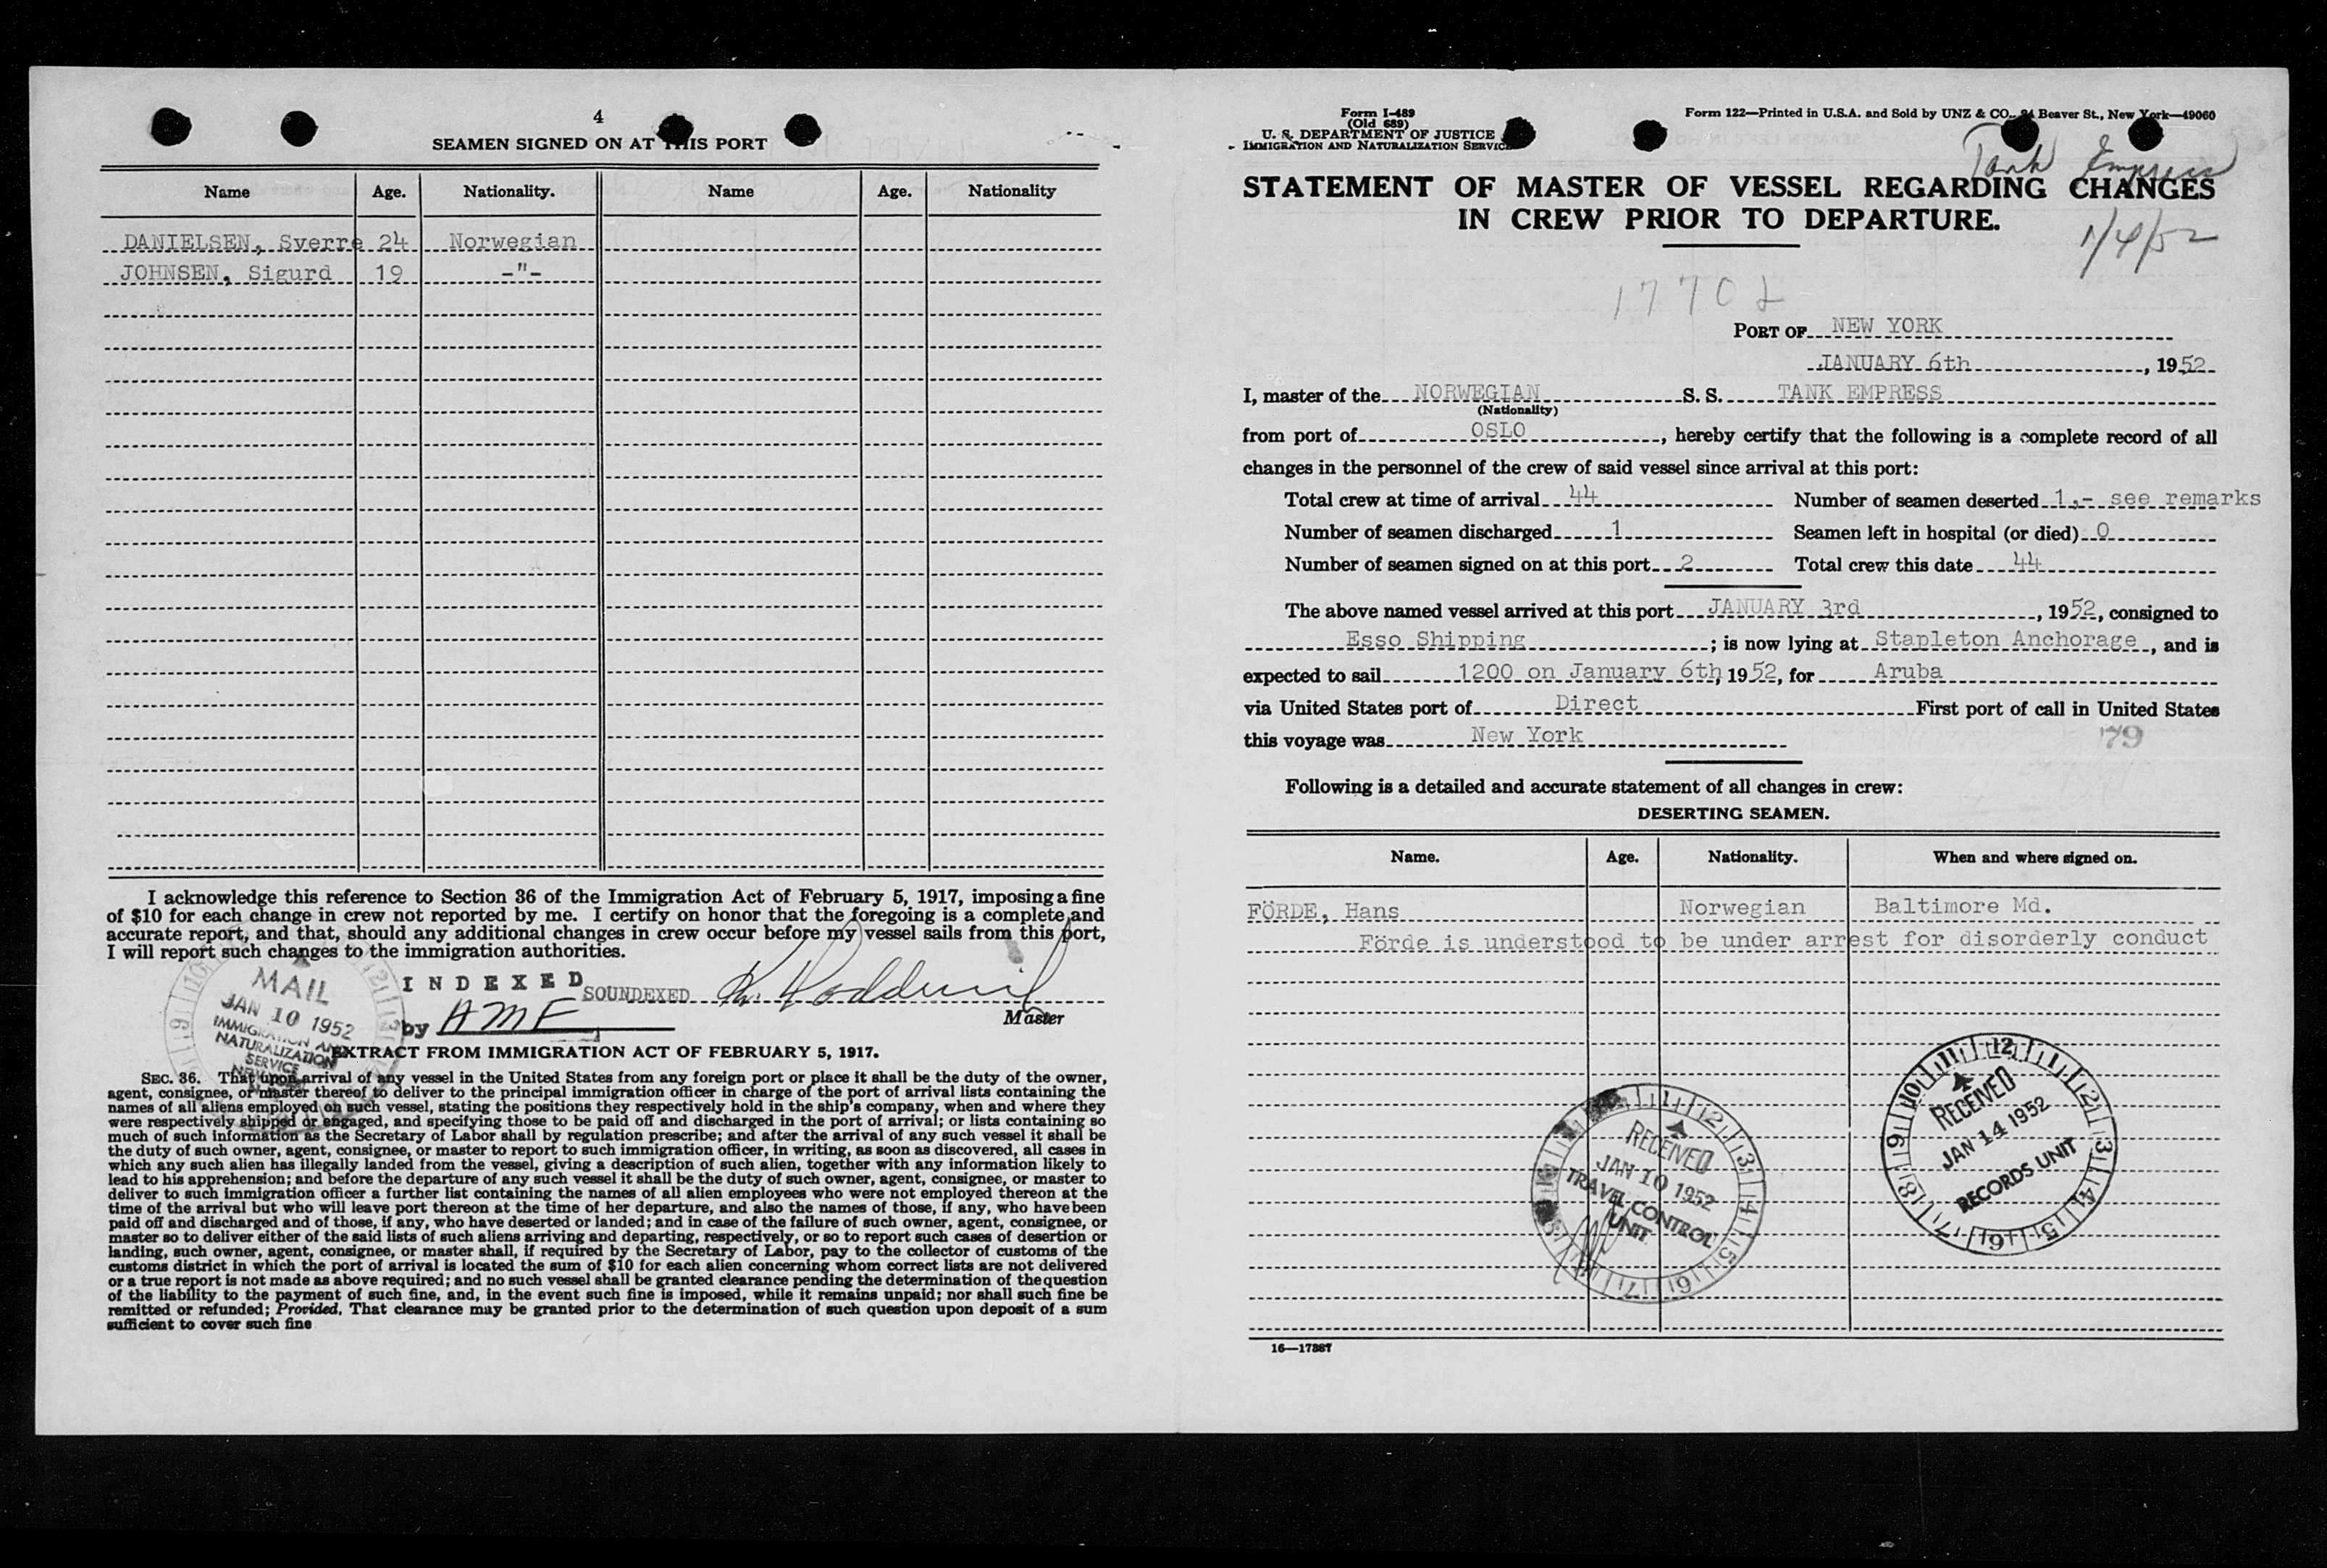 4
SEAMEN SIGNED ON AT THIS PORT
Name Age. Nationality. Name Age. Nationality
DANIELSEN, Sverre 24 Norwegian
JOHNSEN, Sigurd 19 -"-
I acknowledge this reference to Section 36 of the Immigration Act of February 5, 1917, imposing a fine
of $10 for each change in crew not reported by me. I certify on honor that the foregoing is a complete and
accurate report, and that, should any additional changes in crew occur before my vessel sails from this port,
I will report such changes to the immigration authorities.
MAIL
JAN 10 1952
IMMIGRATION AND
NATURALIZATION
SERVICE
INDEXED
SOUNDEXED
by AMF
Master
EXTRACT FROM IMMIGRATION ACT OF FEBRUARY 5, 1917.
SEC. 36. That upon arrival of any vessel in the United States from any foreign port or place it shall be the duty of the owner,
agent, consignee, or master thereof to deliver to the principal immigration officer in charge of the port of arrival lists containing the
names of all aliens employed on such vessel, stating the positions they respectively hold in the ship's company, when and where they
were respectively shipped or engaged, and specifying those to be paid off and discharged in the port of arrival; or lists containing so
much of such information as the Secretary of Labor shall by regulation prescribe; and after the arrival of any such vessel it shall be
the duty of such owner, agent, consignee, or master to report to such immigration officer, in writing, as soon as discovered, all cases in
which any such alien has illegally landed from the vessel, giving a description of such alien, together with any information likely to
lead to his apprehension; and before the departure of any such vessel it shall be the duty of such owner, agent, consignee, or master to
deliver to such immigration officer a further list containing the names of all alien employees who were not employed thereon at the
time of the arrival but who will leave port thereon at the time of her departure, and also the names of those, if any, who have been
paid off and discharged and of those, if any, who have deserted or landed; and in case of the failure of such owner, agent, consignee, or
master so to deliver either of the said lists of such aliens arriving and departing, respectively, or so to report such cases of desertion or
landing, such owner, agent, consignee, or master shall, if required by the Secretary of Labor, pay to the collector of customs of the
customs district in which the port of arrival is located the sum of $10 for each alien concerning whom correct lists are not delivered
or a true report is not made as above required; and no such vessel shall be granted clearance pending the determination of the question
of the liability to the payment of such fine, and, in the event such fine is imposed, while it remains unpaid; nor shall such fine be
remitted or refunded; Provided, That clearance may be granted prior to the determination of such question upon deposit of a sum
sufficient to cover such fine
Form I-489
(Old 689)
U. S. DEPARTMENT OF JUSTICE
IMMIGRATION AND NATURALIZATION SERVICE
Form 122—Printed in U.S.A. and Sold by UNZ & CO., 24 Beaver St., New York—49060
Tank Empress
STATEMENT OF MASTER OF VESSEL REGARDING CHANGES
IN CREW PRIOR TO DEPARTURE.
1/4/52
PORT OF NEW YORK
JANUARY 6th, 1952
I, master of the NORWEGIAN S. S. TANK EMPRESS
(Nationality)
from port of OSLO, hereby certify that the following is a complete record of all
changes in the personnel of the crew of said vessel since arrival at this port:
Total crew at time of arrival 44 Number of seamen deserted 1,- see remarks
Number of seamen discharged 1 Seamen left in hospital (or died) 0
Number of seamen signed on at this port 2 Total crew this date 44
The above named vessel arrived at this port JANUARY 3rd, 1952, consigned to
Esso Shipping; is now lying at Stapleton Anchorage, and is
expected to sail 1200 on January 6th, 1952, for Aruba
via United States port of Direct First port of call in United States
this voyage was New York
79
Following is a detailed and accurate statement of all changes in crew:
DESERTING SEAMEN.
Name. Age. Nationality. When and where signed on.
FÖRDE, Hans Norwegian Baltimore Md.
Förde is understood to be under arrest for disorderly conduct
RECEIVED
JAN 10 1952
TRAVEL CONTROL
UNIT
RECEIVED
JAN 14 1952
RECORDS UNIT
16—17387